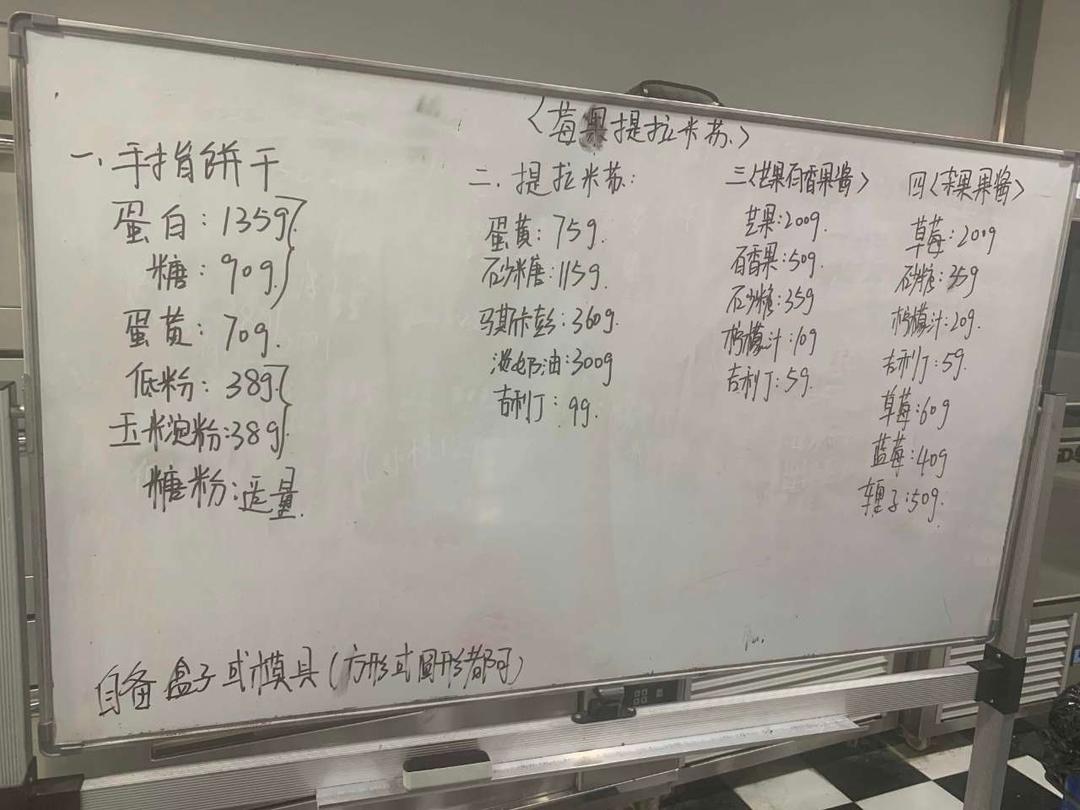 〈莓果提拉米苏〉
一、手指饼干
蛋白：135g
糖：90g
蛋黄：70g.
低粉：38g
玉米淀粉：38g
糖粉：适量.
二、提拉米苏：
蛋黄：75g.
砂糖：115g
马斯卡彭：360g.
淡奶油：300g
吉利丁：9g.
三〈芒果百香果酱〉
芒果：200g.
百香果：50g.
砂糖：35g
柠檬汁：10g
吉利丁：5g.
四〈莓果果酱〉
草莓：200g
砂糖：35g
柠檬汁：20g.
吉利丁：5g.
草莓：60g
蓝莓：40g
车厘子：50g.
自备盒子或模具（方形或圆形都可）